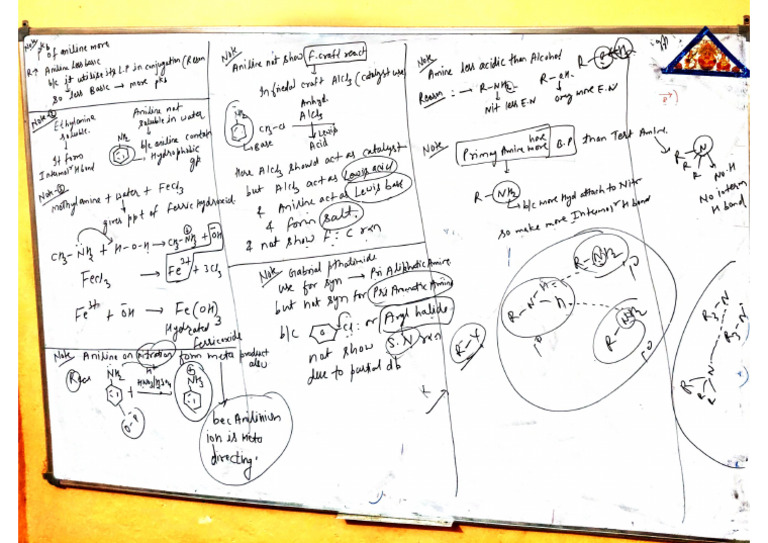 Note pkb of aniline more
R→ Aniline less basic
b/c it utilise its L.P in conjugation (Reson
so less Basic → more pkb
Note-①
Ethylamine
soluble.
↓
It form
Intermolr H bond
Aniline not
soluble in water
NH2
b/c aniline contain
Hydrophobic
gp
Note-②
methylamine + water + FeCl3
gives ppt of ferric hydroxide.
CH3-NH2 + H-O-H → CH3-NH3 + OH
FeCl3 → Fe3+ + 3Cl3
Fe3+ + OH → Fe(OH)3
Hydrated
Ferricoxide
Note Aniline on nitration form meta product
also
Reas
NH2
+ HNO3/H2SO4
H+
NH3
O-P
bec Anilinium
ion is meta
directing.
Note
Aniline not show F.craft react
In friedal craft AlCl3 (catalyst use)
NH2
Base
CH3-Cl
Anhyd.
AlCl3
Lewis
Acid
Here AlCl3 should act as catalyst
but AlCl3 act as Lewis acid
& Aniline act as Lewis base
& form salt.
& not show F.C rxn
Note → Gabrial pthalimide
use for syn → Pri Aliphatic Amine.
but not syn for Pri Aromatic Amine
b/c Cl: or Aryl halide
not show S.N rxn
due to partial db
Note
Amine less acidic than Alcohol
Reason: → R-NH2
↓
Nit less E.N
R-OH.
↓
oxy more E.N
Note
Primay Amine have more B.P than Tert Amine.
R-NH2
b/c more Hyd attach to Nitr
so make more Intermolr H bond
R-N
R
R
No.H
No interm
H bond
R-NH2
1°
R-N-H
H
1°
R-NH2
1°
R-X
R3-N
R3-N
R-N
R
R